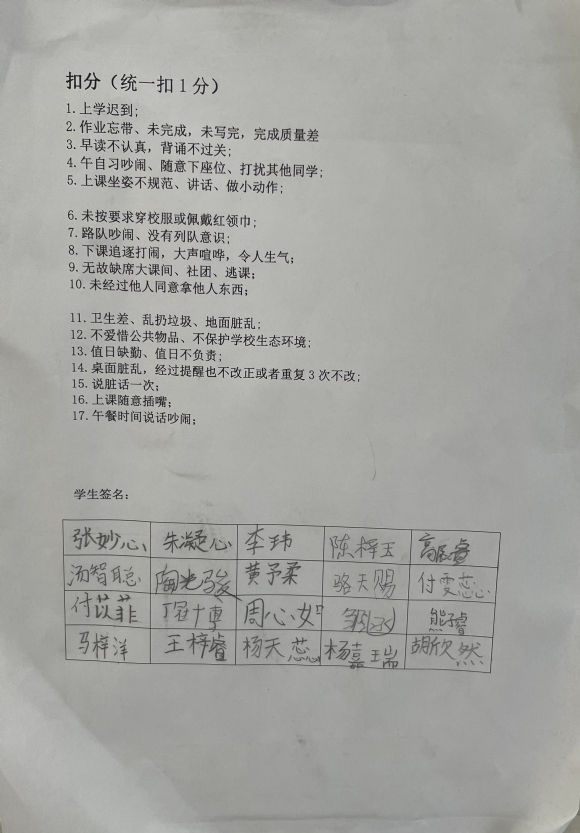 扣分（统一扣1分）
1.上学迟到;
2.作业忘带、未完成，未写完，完成质量差
3.早读不认真，背诵不过关;
4.午自习吵闹、随意下座位、打扰其他同学;
5.上课坐姿不规范、讲话、做小动作;
6.未按要求穿校服或佩戴红领巾;
7.路队吵闹、没有列队意识;
8.下课追逐打闹，大声喧哗，令人生气;
9.无故缺席大课间、社团、逃课;
10.未经过他人同意拿他人东西;
11.卫生差、乱扔垃圾、地面脏乱;
12.不爱惜公共物品、不保护学校生态环境;
13.值日缺勤、值日不负责;
14.桌面脏乱，经过提醒也不改正或者重复3次不改;
15.说脏话一次;
16.上课随意插嘴;
17.午餐时间说话吵闹;
学生签名:
张妙心 朱凝心 李玮 陈梓玉
汤智聪 陶光骏 黄予柔 骆天赐 付雯蕊
付苡菲 丁冠博 熊子睿
马梓洋 王梓睿 杨天蕊 杨嘉瑞 胡欣然